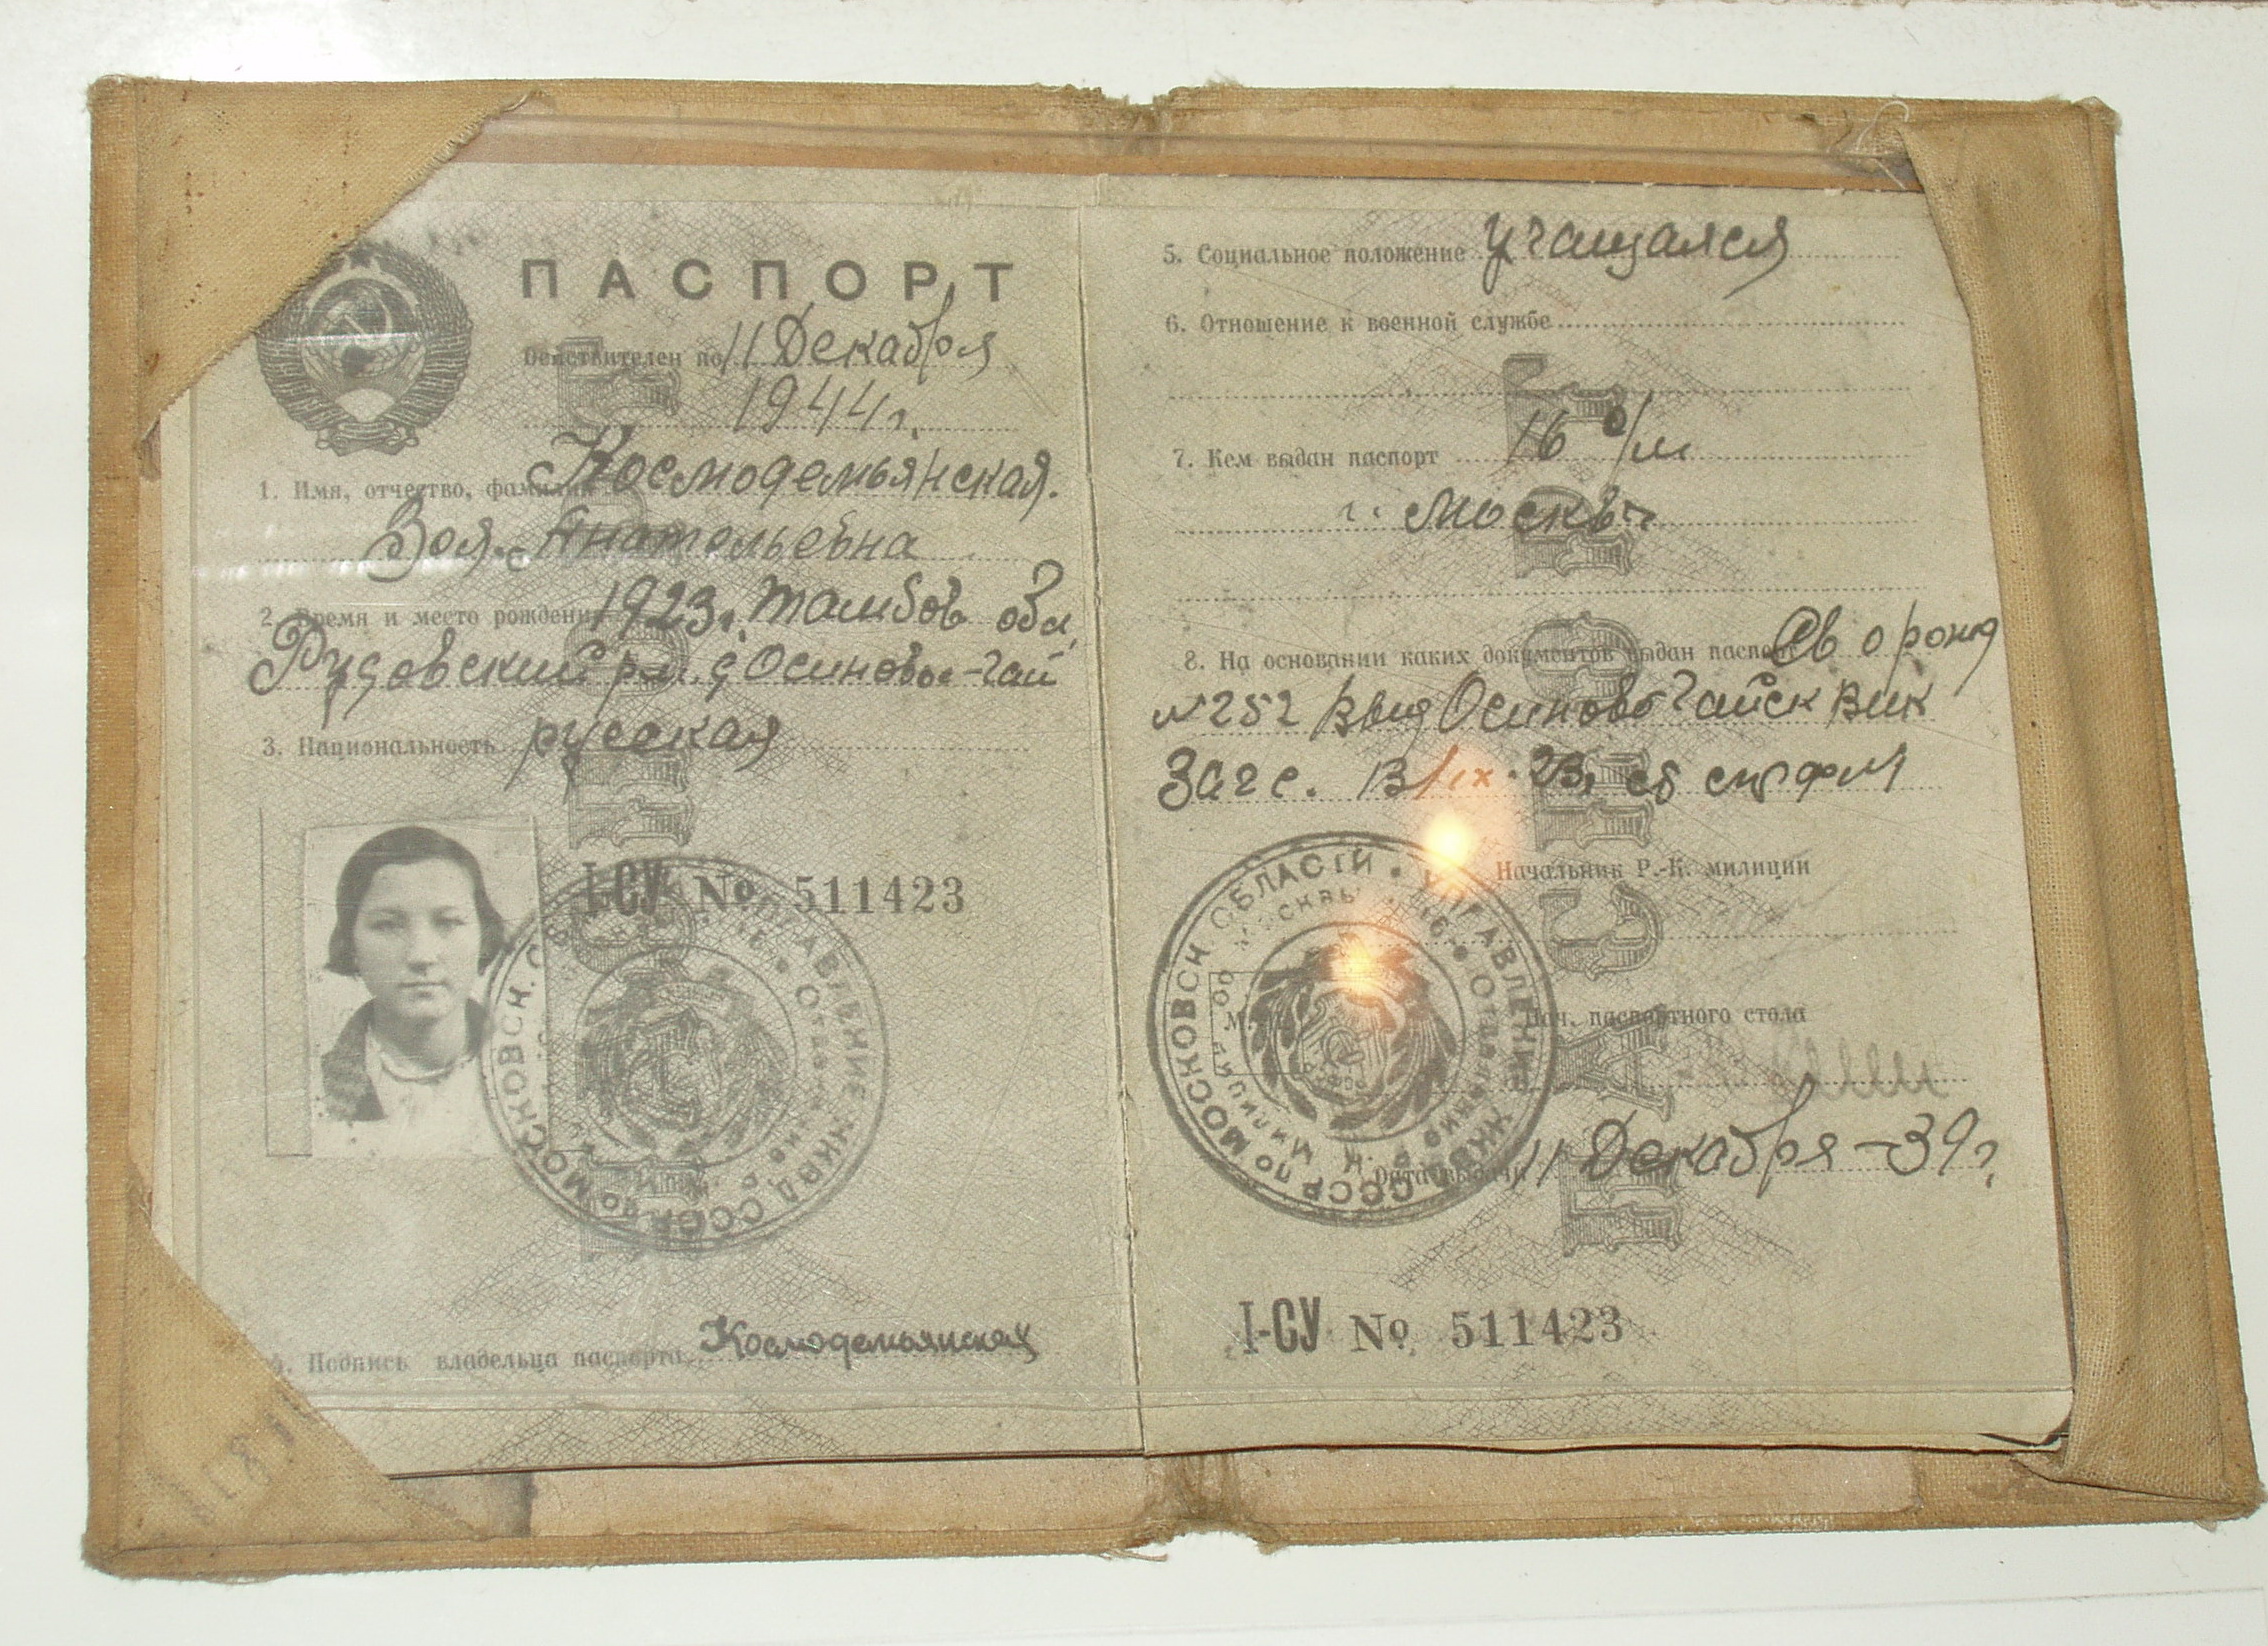 ПАСПОРТ
Действителен по 11 Декабря
1944 г.
1. Имя, отчество, фамилия Космодемьянская.
Зоя. Анатольевна
2. Время и место рождения 1923 г. Тамбов обл,
р-н. д Осиновые-Гаи
3. Национальность русская
I-СУ № 511423
УПРАВЛЕНИЕ НКВД СССР по МОСКОВСК.
4. Подпись владельца паспорта Космодемьянская
5. Социальное положение учащаяся
6. Отношение к военной службе
7. Кем выдан паспорт 16 о/м
г. Москвы
8. На основании каких документов выдан паспорт Св о рожд
№ 252 выд Осиново Гайск вик
Загс. 23,
Начальник Р.-К. милиции
УПРАВЛЕНИЕ НКВД СССР по МОСКОВСК. ОБЛАСТИ
М.
Нач. паспортного стола
Дата выдачи 11 Декабря - 39 г.
I-СУ № 511423
ПАСПОРТ
ПАСПОРТ